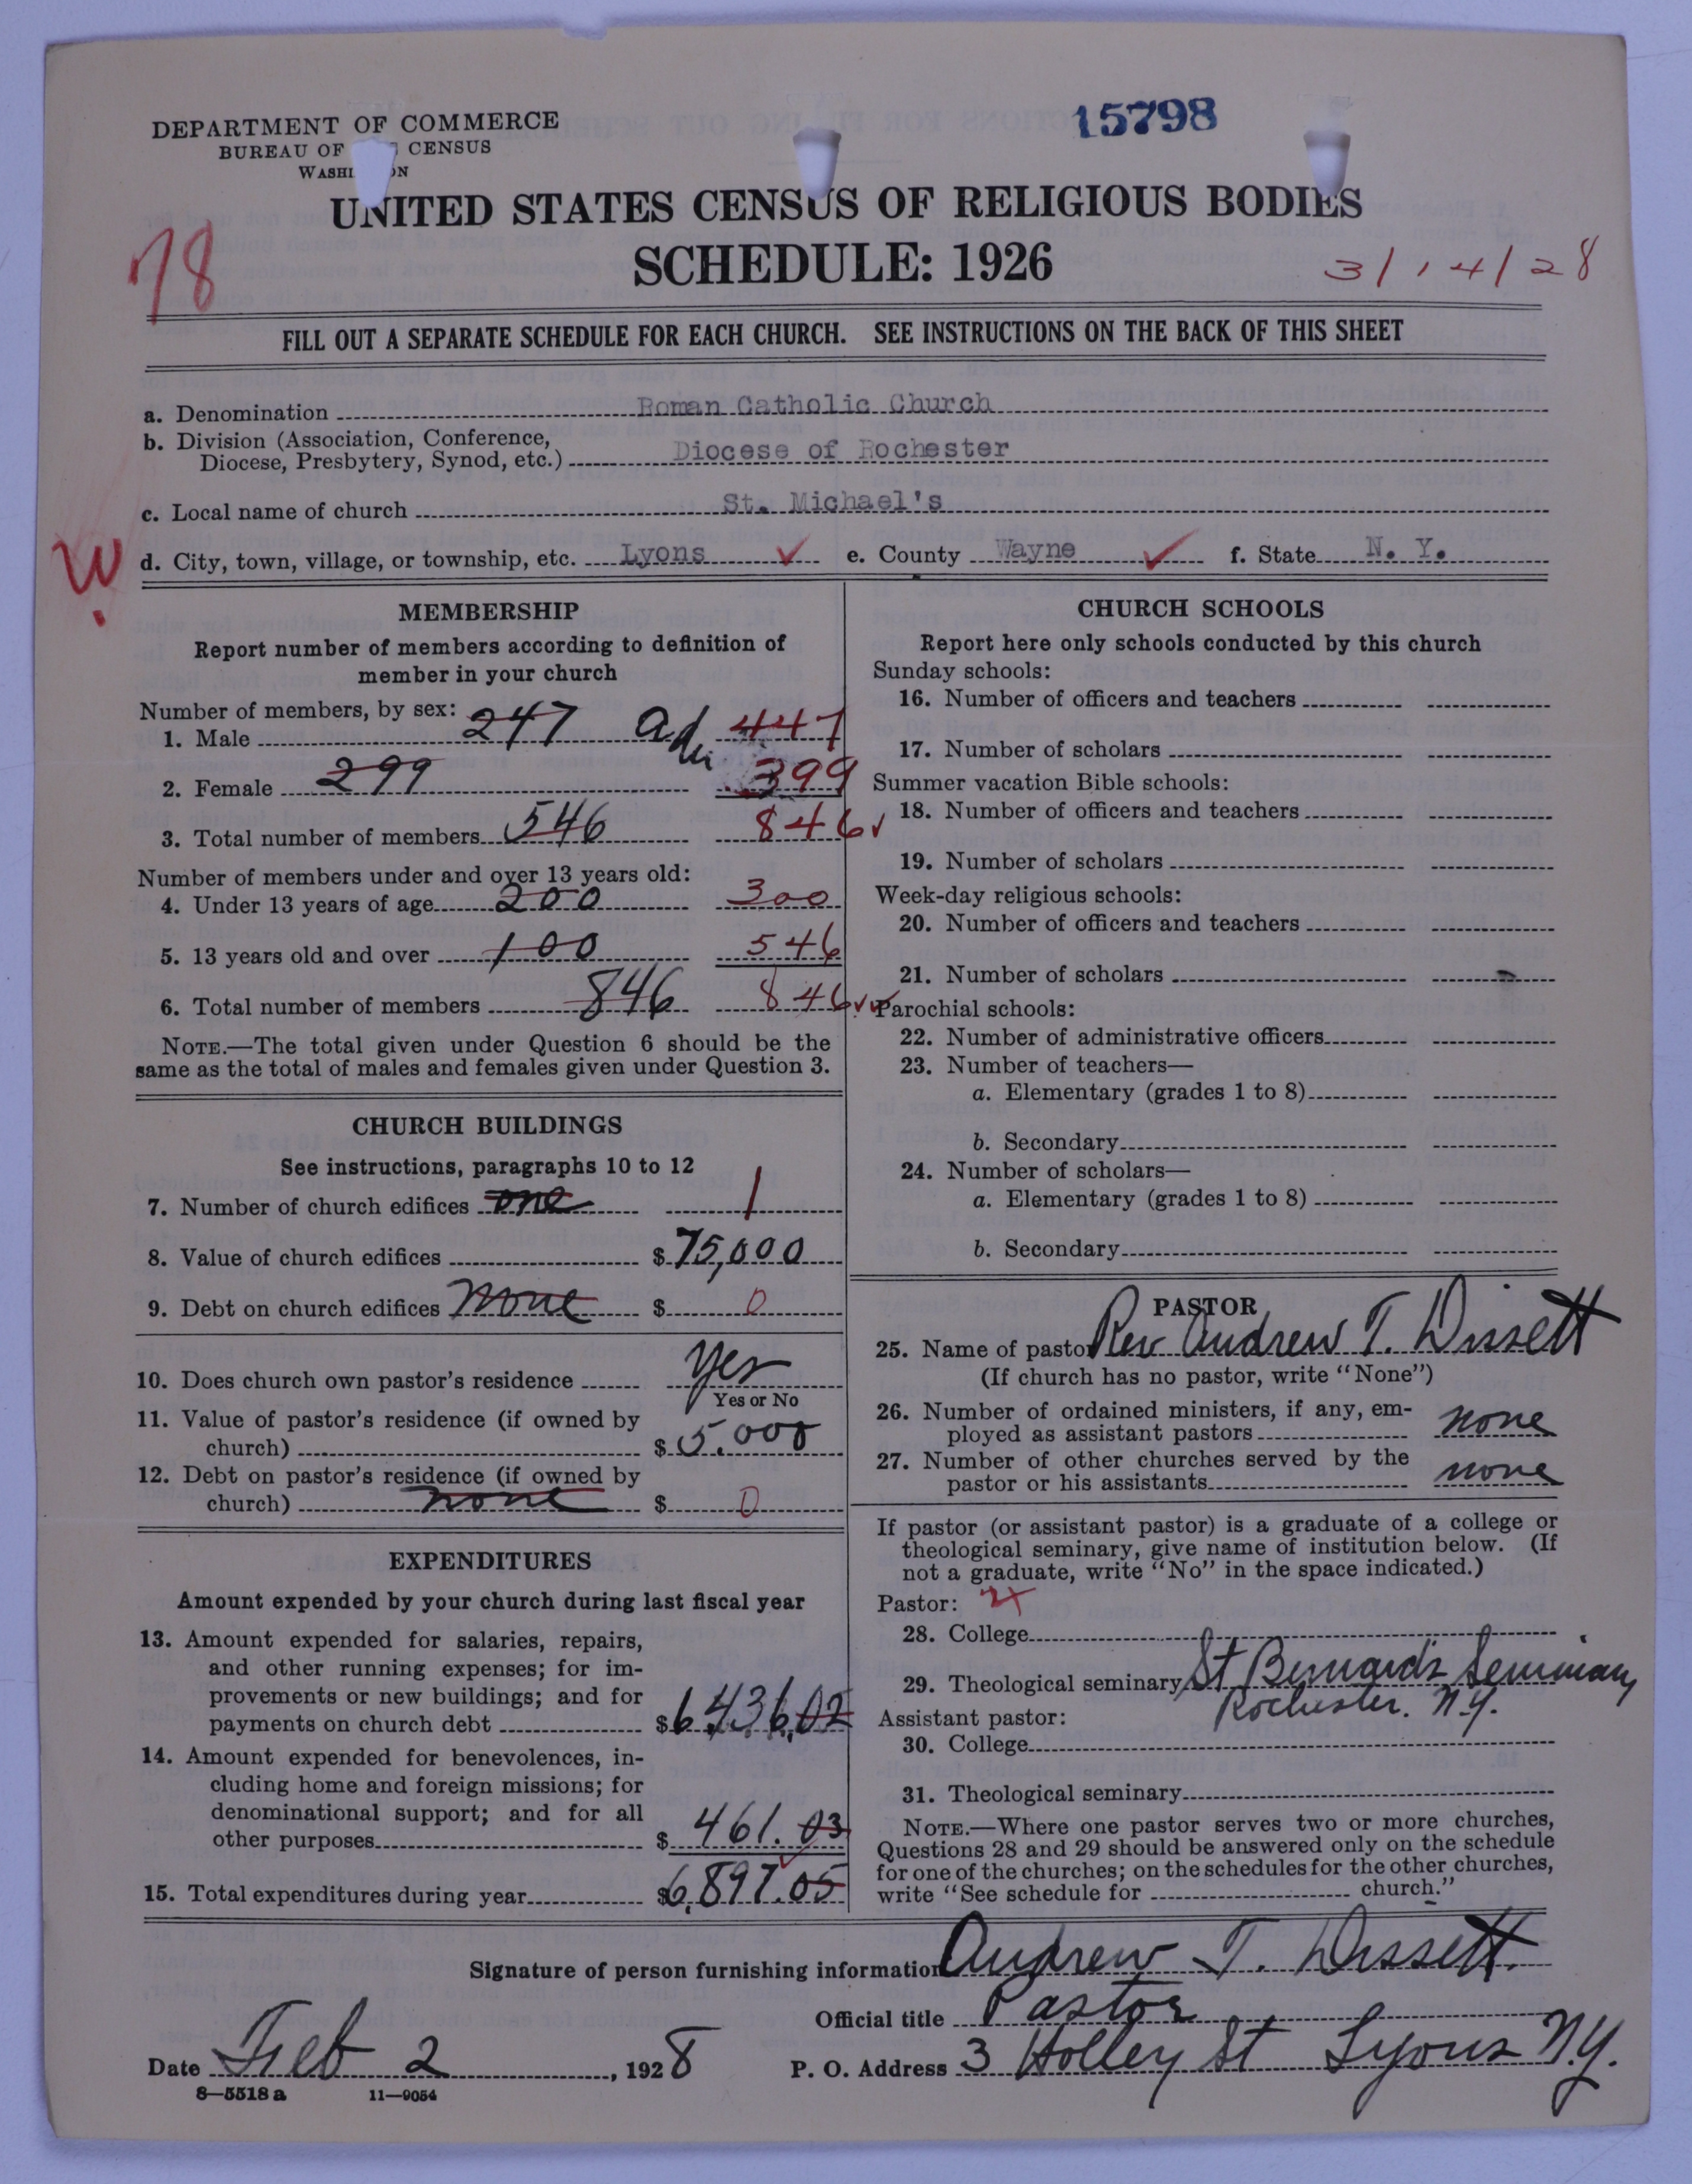 15798
DEPARTMENT OF COMMERCE
BUREAU OF CENSUS
WASHI ON
UNITED STATES CENSUS OF RELIGIOUS BODIES
78
SCHEDULE: 1926
3/14/28
FILL OUT A SEPARATE SCHEDULE FOR EACH CHURCH. SEE INSTRUCTIONS ON THE BACK OF THIS SHEET
a. Denomination Roman Catholic Church
b. Division (Association, Conference,
Diocese, Presbytery, Synod, etc.) Diocese of Rochester
c. Local name of church St. Michael's
W
d. City, town, village, or township, etc. Lyons ✓ e. County Wayne ✓ f. State N. Y.
MEMBERSHIP
Report number of members according to definition of
member in your church
Number of members, by sex:
1. Male 247 447
2. Female 299 399
3. Total number of members 546 846 ✓
Number of members under and over 13 years old:
4. Under 13 years of age 200 300
5. 13 years old and over 100 546
6. Total number of members 846 846 ✓✓
NOTE.—The total given under Question 6 should be the
same as the total of males and females given under Question 3.
CHURCH BUILDINGS
See instructions, paragraphs 10 to 12
7. Number of church edifices one 1
8. Value of church edifices $ 75,000
9. Debt on church edifices none $ 0
10. Does church own pastor's residence yes
Yes or No
11. Value of pastor's residence (if owned by
church) $ 5.000
12. Debt on pastor's residence (if owned by
church) none $ 0
EXPENDITURES
Amount expended by your church during last fiscal year
13. Amount expended for salaries, repairs,
and other running expenses; for im-
provements or new buildings; and for
payments on church debt $ 6,436.02
14. Amount expended for benevolences, in-
cluding home and foreign missions; for
denominational support; and for all
other purposes $ 461.03
15. Total expenditures during year $ 6,897.05
CHURCH SCHOOLS
Report here only schools conducted by this church
Sunday schools:
16. Number of officers and teachers
17. Number of scholars
Summer vacation Bible schools:
18. Number of officers and teachers
19. Number of scholars
Week-day religious schools:
20. Number of officers and teachers
21. Number of scholars
Parochial schools:
22. Number of administrative officers
23. Number of teachers—
a. Elementary (grades 1 to 8)
b. Secondary
24. Number of scholars—
a. Elementary (grades 1 to 8)
b. Secondary
PASTOR
25. Name of pastor Rev Andrew T. Dissett
(If church has no pastor, write "None")
26. Number of ordained ministers, if any, em-
ployed as assistant pastors none
27. Number of other churches served by the
pastor or his assistants none
If pastor (or assistant pastor) is a graduate of a college or
theological seminary, give name of institution below. (If
not a graduate, write "No" in the space indicated.)
Pastor:
28. College
29. Theological seminary St Bernard's Seminary
Rochester. N.Y.
Assistant pastor:
30. College
31. Theological seminary
NOTE.—Where one pastor serves two or more churches,
Questions 28 and 29 should be answered only on the schedule
for one of the churches; on the schedules for the other churches,
write "See schedule for church."
Signature of person furnishing information Andrew T. Dissett.
Official title Pastor
Date Feb 2, 1928 P. O. Address 3 Holley St Lyons N.Y.
8—5518 a 11—9054